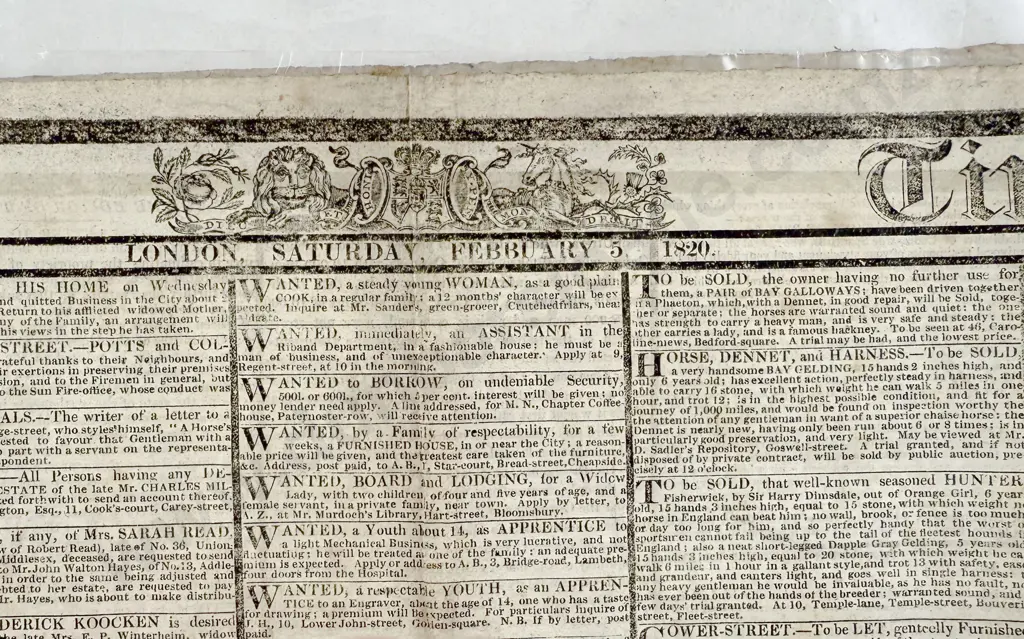 Ti
LONDON, SATURDAY, FEBRUARY 5, 1820.
HIS HOME on Wednesday
nd quitted Business in the City about
Return to his afflicted widowed Mother,
ny of the Family, an arrangement will
his views in the step he has taken.
STREET.—POTTS and COL-
rateful thanks to their Neighbours, and
ir exertions in preserving their premises
sion, and to the Firemen in general, but
o the Sun Fire-office, whose conduct was
ALS.—The writer of a letter to a
ge-street, who styles himself, "A Horse's
ested to favour that Gentleman with a
part with a servant on the representa-
pondent.
—All Persons having any DE-
ESTATE of the late Mr. CHARLES MIL
ed forthwith to send an account thereof
gton, Esq., 11, Cook's-court, Carey-street,
, if any, of Mrs. SARAH READ,
w of Robert Read), late of No. 36, Union
Middlesex, deceased, are requested to send
to Mr. John Walton Hayes, of No. 13, Addle
in order to the same being adjusted and
ebted to her estate, are requested to pay
r. Hayes, who is about to make distribu-
DERICK KOOCKEN is desired
the late Mrs. E. P. Winterheim, widow
WANTED, a steady young WOMAN, as a good plain
COOK, in a regular family; a 12 months' character will be ex-
pected. Inquire at Mr. Sanders, green-grocer, Crutchedfriars, near
aldgate.
WANTED, immediately, an ASSISTANT in the
Riband Department, in a fashionable house: he must be a
man of business, and of unexceptionable character. Apply at 9,
Regent-street, at 10 in the morning.
WANTED to BORROW, on undeniable Security,
500l. or 600l., for which 5 per cent. interest will be given: no
money lender need apply. A line addressed, for M. N., Chapter Coffee-
house, Paternoster-row, will receive attention.
WANTED, by a Family of respectability, for a few
weeks, a FURNISHED HOUSE, in or near the City; a reason-
able price will be given, and the greatest care taken of the furniture,
&c. Address, post paid, to A. B., 1, Star-court, Bread-street, Cheapside.
WANTED, BOARD and LODGING, for a Widow
Lady, with two children, of four and five years of age, and a
female servant, in a private family, near town. Apply by letter, to
Z., at Mr. Murdoch's Library, Hart-street, Bloomsbury.
WANTED, a Youth about 14, as APPRENTICE to
a light Mechanical Business, which is very lucrative, and not
fluctuating: he will be treated as one of the family: an adequate pre-
mium is expected. Apply or address to A. B., 3, Bridge-road, Lambeth,
four doors from the Hospital.
WANTED, a respectable YOUTH, as an APPREN-
TICE to an Engraver, about the age of 14, one who has a taste
for drawing; a premium will be expected. For particulars inquire of
I. H., 10, Lower John-street, Golden-square. N. B. If by letter, post
paid.
TO be SOLD, the owner having no further use for
them, a PAIR of BAY GALLOWAYS; have been driven together
in a Phaeton, which, with a Dennet, in good repair, will be Sold, toge-
ther or separate; the horses are warranted sound and quiet: the one
has strength to carry a heavy man, and is very safe and steady: the
other carries a lady, and is a famous hackney. To be seen at 46, Caro-
line-mews, Bedford-square. A trial may be had, and the lowest price.
HORSE, DENNET, and HARNESS.—To be SOLD,
a very handsome BAY GELDING, 15 hands 2 inches high, and
only 6 years old; has excellent action, perfectly steady in harness, and
able to carry 16 stone, with which weight he can walk 5 miles in one
hour, and trot 12; is in the highest possible condition, and fit for a
journey of 1,000 miles, and would be found on inspection worthy the
the attention of any gentleman in want of a superior chaise horse; the
Dennet is nearly new, having only been run about 6 or 8 times; is in
particularly good preservation, and very light. May be viewed at Mr.
D. Sadler's Repository, Goswell-street. A trial granted, and if not
disposed of by private contract, will be sold by public auction, pre-
cisely at 12 o'clock.
TO be SOLD, that well-known seasoned HUNTER
Fisherwick, by Sir Harry Dimsdale, out of Orange Girl, 6 year
old, 15 hands 3 inches high, equal to 15 stone, with which weight n
horse in England can beat him; no wall, brook, or fence is too much
or day too long for him, and so perfectly handy that the worst o
sportsmen cannot fail being up to the tail of the fleetest hounds i
England; also a neat short-legged Dapple Gray Gelding, 5 years old
15 hands 3 inches high, equal to 20 stone, with which weight he ca
walk 6 miles in 1 hour in a gallant style, and trot 13 with safety, ease
and grandeur, and canters light, and goes well in single harness: t
any heavy gentleman he would be invaluable, as he has no fault, no
has ever been out of the hands of the breeder; warranted sound, and
few days' trial granted. At 10, Temple-lane, Temple-street, Bouveri
street, Fleet-street.
GOWER-STREET.—To be LET, genteelly Furnishe